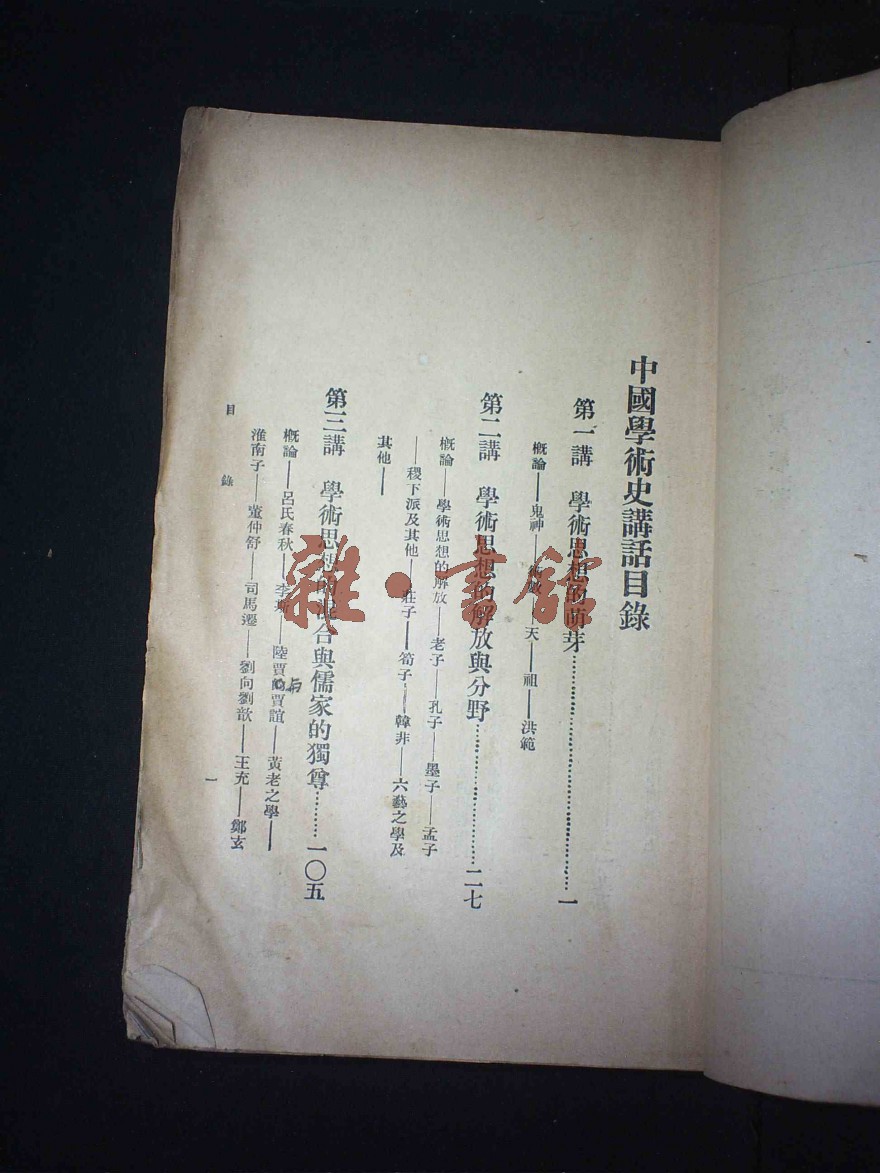 中國學術史講話目錄
第一講　學術思想的萌芽……一
概論——鬼神——術數——天——祖——洪範
第二講　學術思想的解放與分野……二七
概論——學術思想的解放——老子——孔子——墨子——孟子
——稷下派及其他——莊子——筍子——韓非——六藝之學及
其他——
第三講　學術思想的混合與儒家的獨尊……一〇五
概論——呂氏春秋——李斯——陸賈與賈誼——黃老之學——
淮南子——董仲舒——司馬遷——劉向劉歆——王充——鄭玄
目錄
一
雜·書館